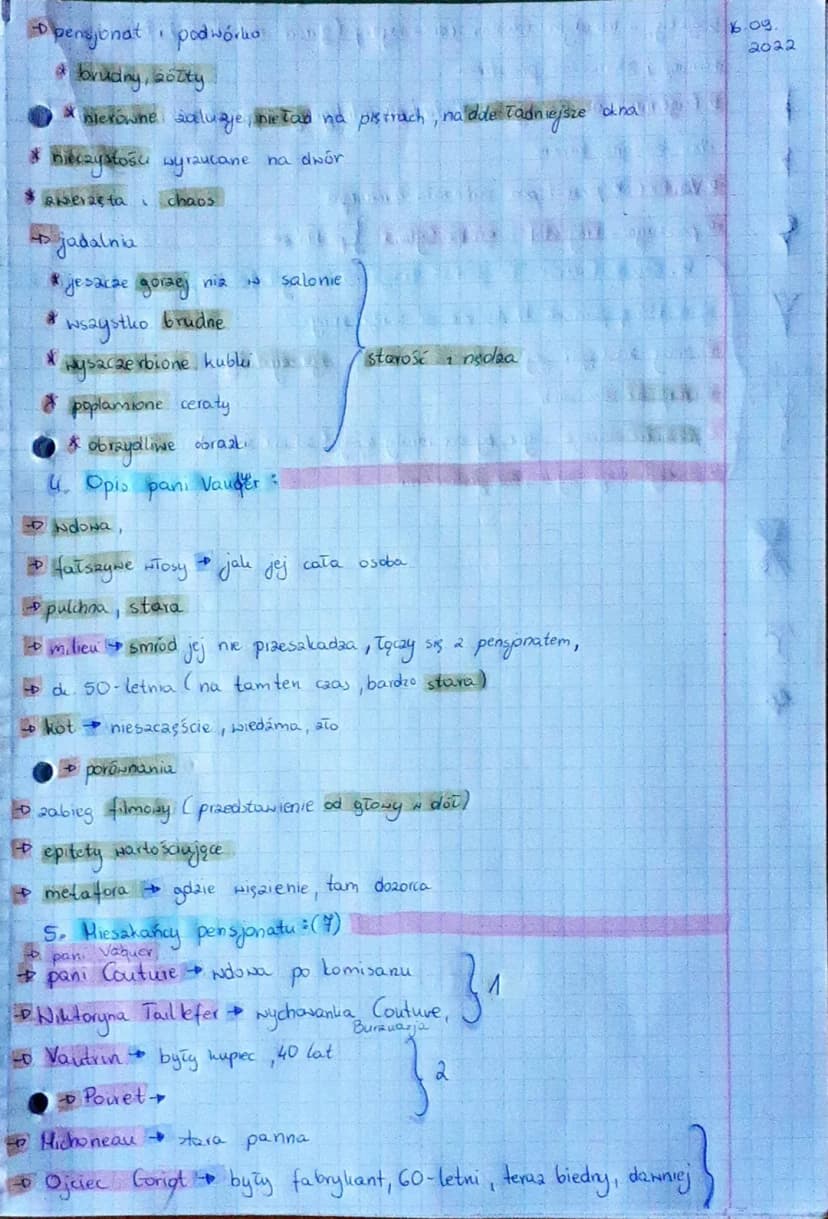 → pensjonat i podwórko
16.09.
2022
* brudny, żółty
* nierówne żaluzje, nieład na piętrach, na dole ładniejsze okna
* nieczystości wyrzucane na dwór
* zwierzęta i chaos
→ jadalnia
* jeszcze gorzej niż w salonie
* wszystko brudne
* wyszczerbione kubki
starość i nędza
* poplamione ceraty
* obrzydliwe obrazki
4. Opis pani Vauqer:
→ wdowa,
→ fałszywe włosy → jak jej cała osoba
→ pulchna, stara
→ milieu → smród jej nie przeszkadza, łączy się z pensjonatem,
→ ok. 50-letnia (na tamten czas, bardzo stara)
→ kot → nieszczęście, wiedźma, zło
→ porównania
→ zabieg filmowy (przedstawienie od głowy w dół)
→ epitety wartościujące
→ metafora → gdzie więzienie, tam dozorca
5. Mieszkańcy pensjonatu: (7)
→ pani Vaquer
→ pani Couture → wdowa po komisarzu
1
→ Wiktoryna Taillefer → wychowanka Couture,
Burżuazja
→ Vautrin → były kupiec, 40 lat
2
→ Poiret →
→ Michoneau → stara panna
→ Ojciec Goriot → były fabrykant, 60-letni, teraz biedny, dawniej